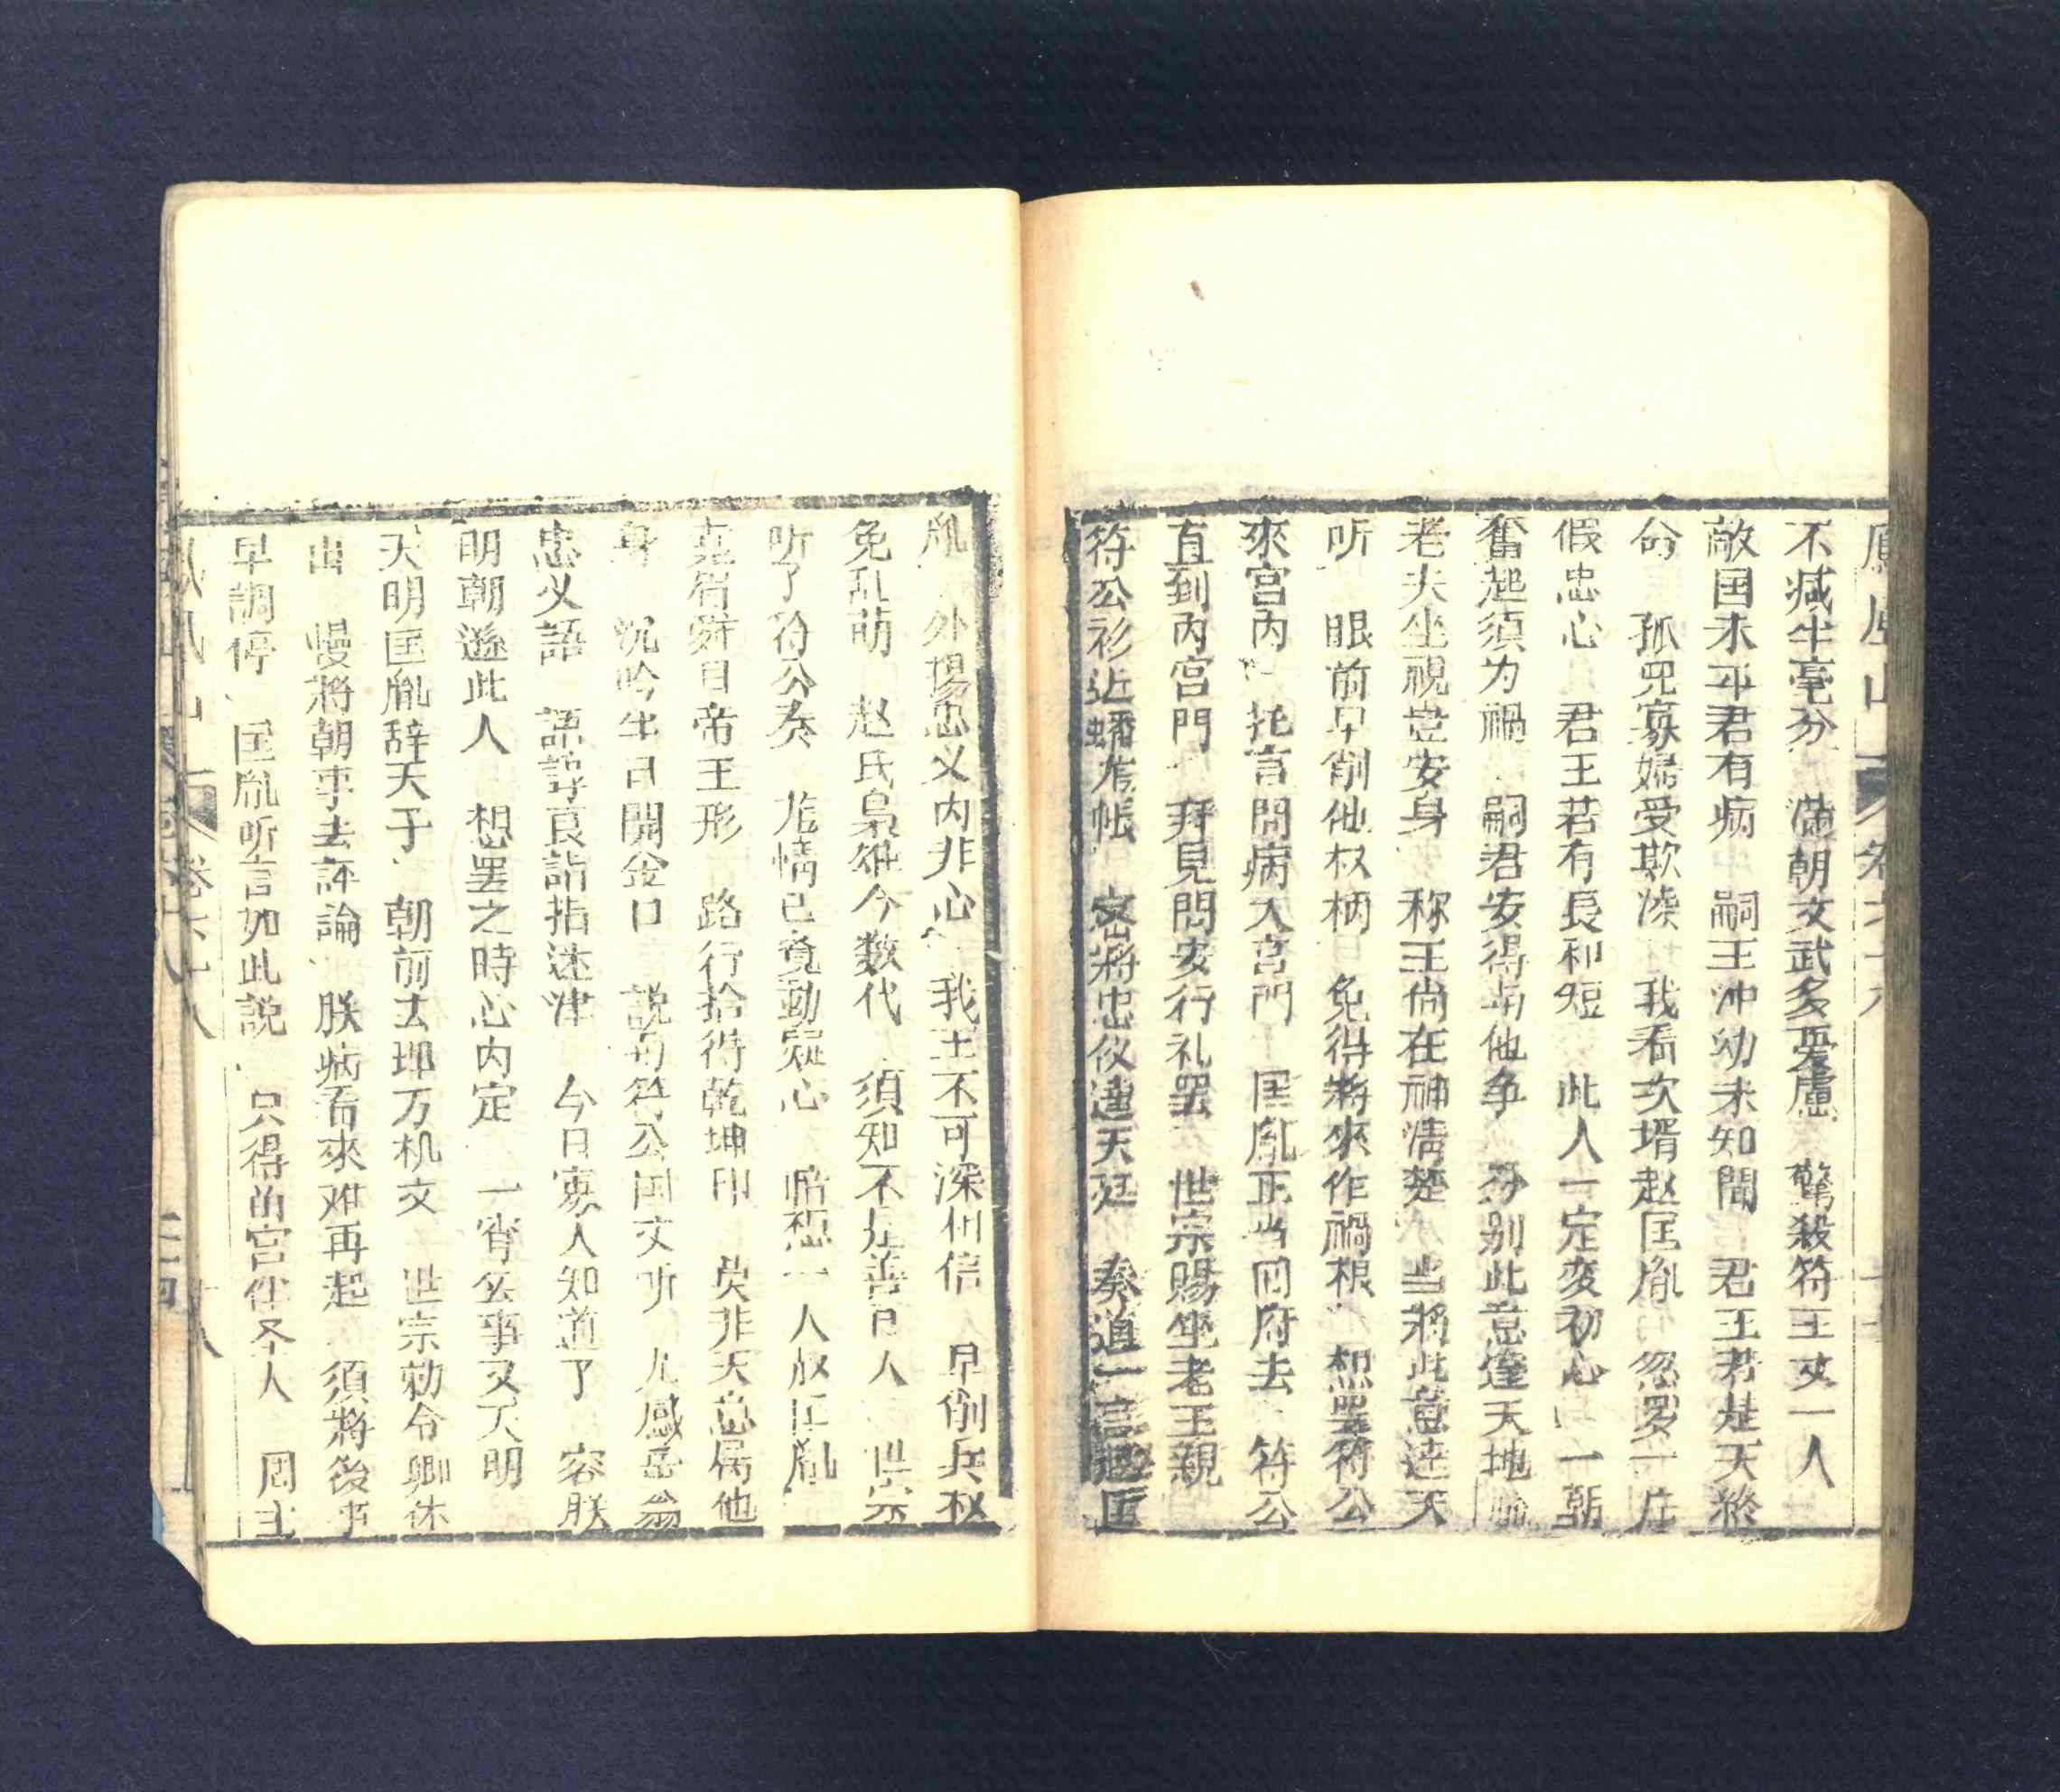 不減半毫分 滿朝文武多憂慮 驚殺符王丈一人
敵囯未平君有病 嗣王冲幼未知聞 君王若是天終
命 孤児寡婦受欺凌 我看次壻赵匡胤 忽羅一片
假忠心 君王若有長和短 此人一定変初心 一朝
奮起須为禍 嗣君安得与他争 此意達天地
老夫坐視豈安身 称王尚在神清楚 当將此意達天
听 眼前早削他权柄 免得將來作禍根 想罢符公
來宮内 托言問病入宮門 匡胤正当囬府去 符公
直到内宮門 拜見問安行礼罢 世宗賜坐老王親
符公移近蟠龙帳 密將忠仪達天廷 奏道一言赵匡
胤 外揚忠义内非心 我王不可深相信 早削兵权
免乱萌 赵氏枭雄今数代 須知不是善日人 世宗
听了符公奏 龙情已覚動疑心 暗想一人赵匡胤
尭眉舜目帝王形 路行拾得乾坤印 莫非天意属他
身 沉吟半日開金口 説与符公囯丈听 凡感岳翁
忠义語 諄諄良誥指迷津 今日寡人知道了 容朕
明朝遜此人 想罢之時心内定 一宵公事又天明
天明匡胤辞天子 朝前去理万机文 世宗勅令卿休
出 慢將朝事去評論 朕病看來难再起 須將後事
早調停 匡胤听言如此説 只得前宮伴圣人 周主
鳳凰山 卷六十八